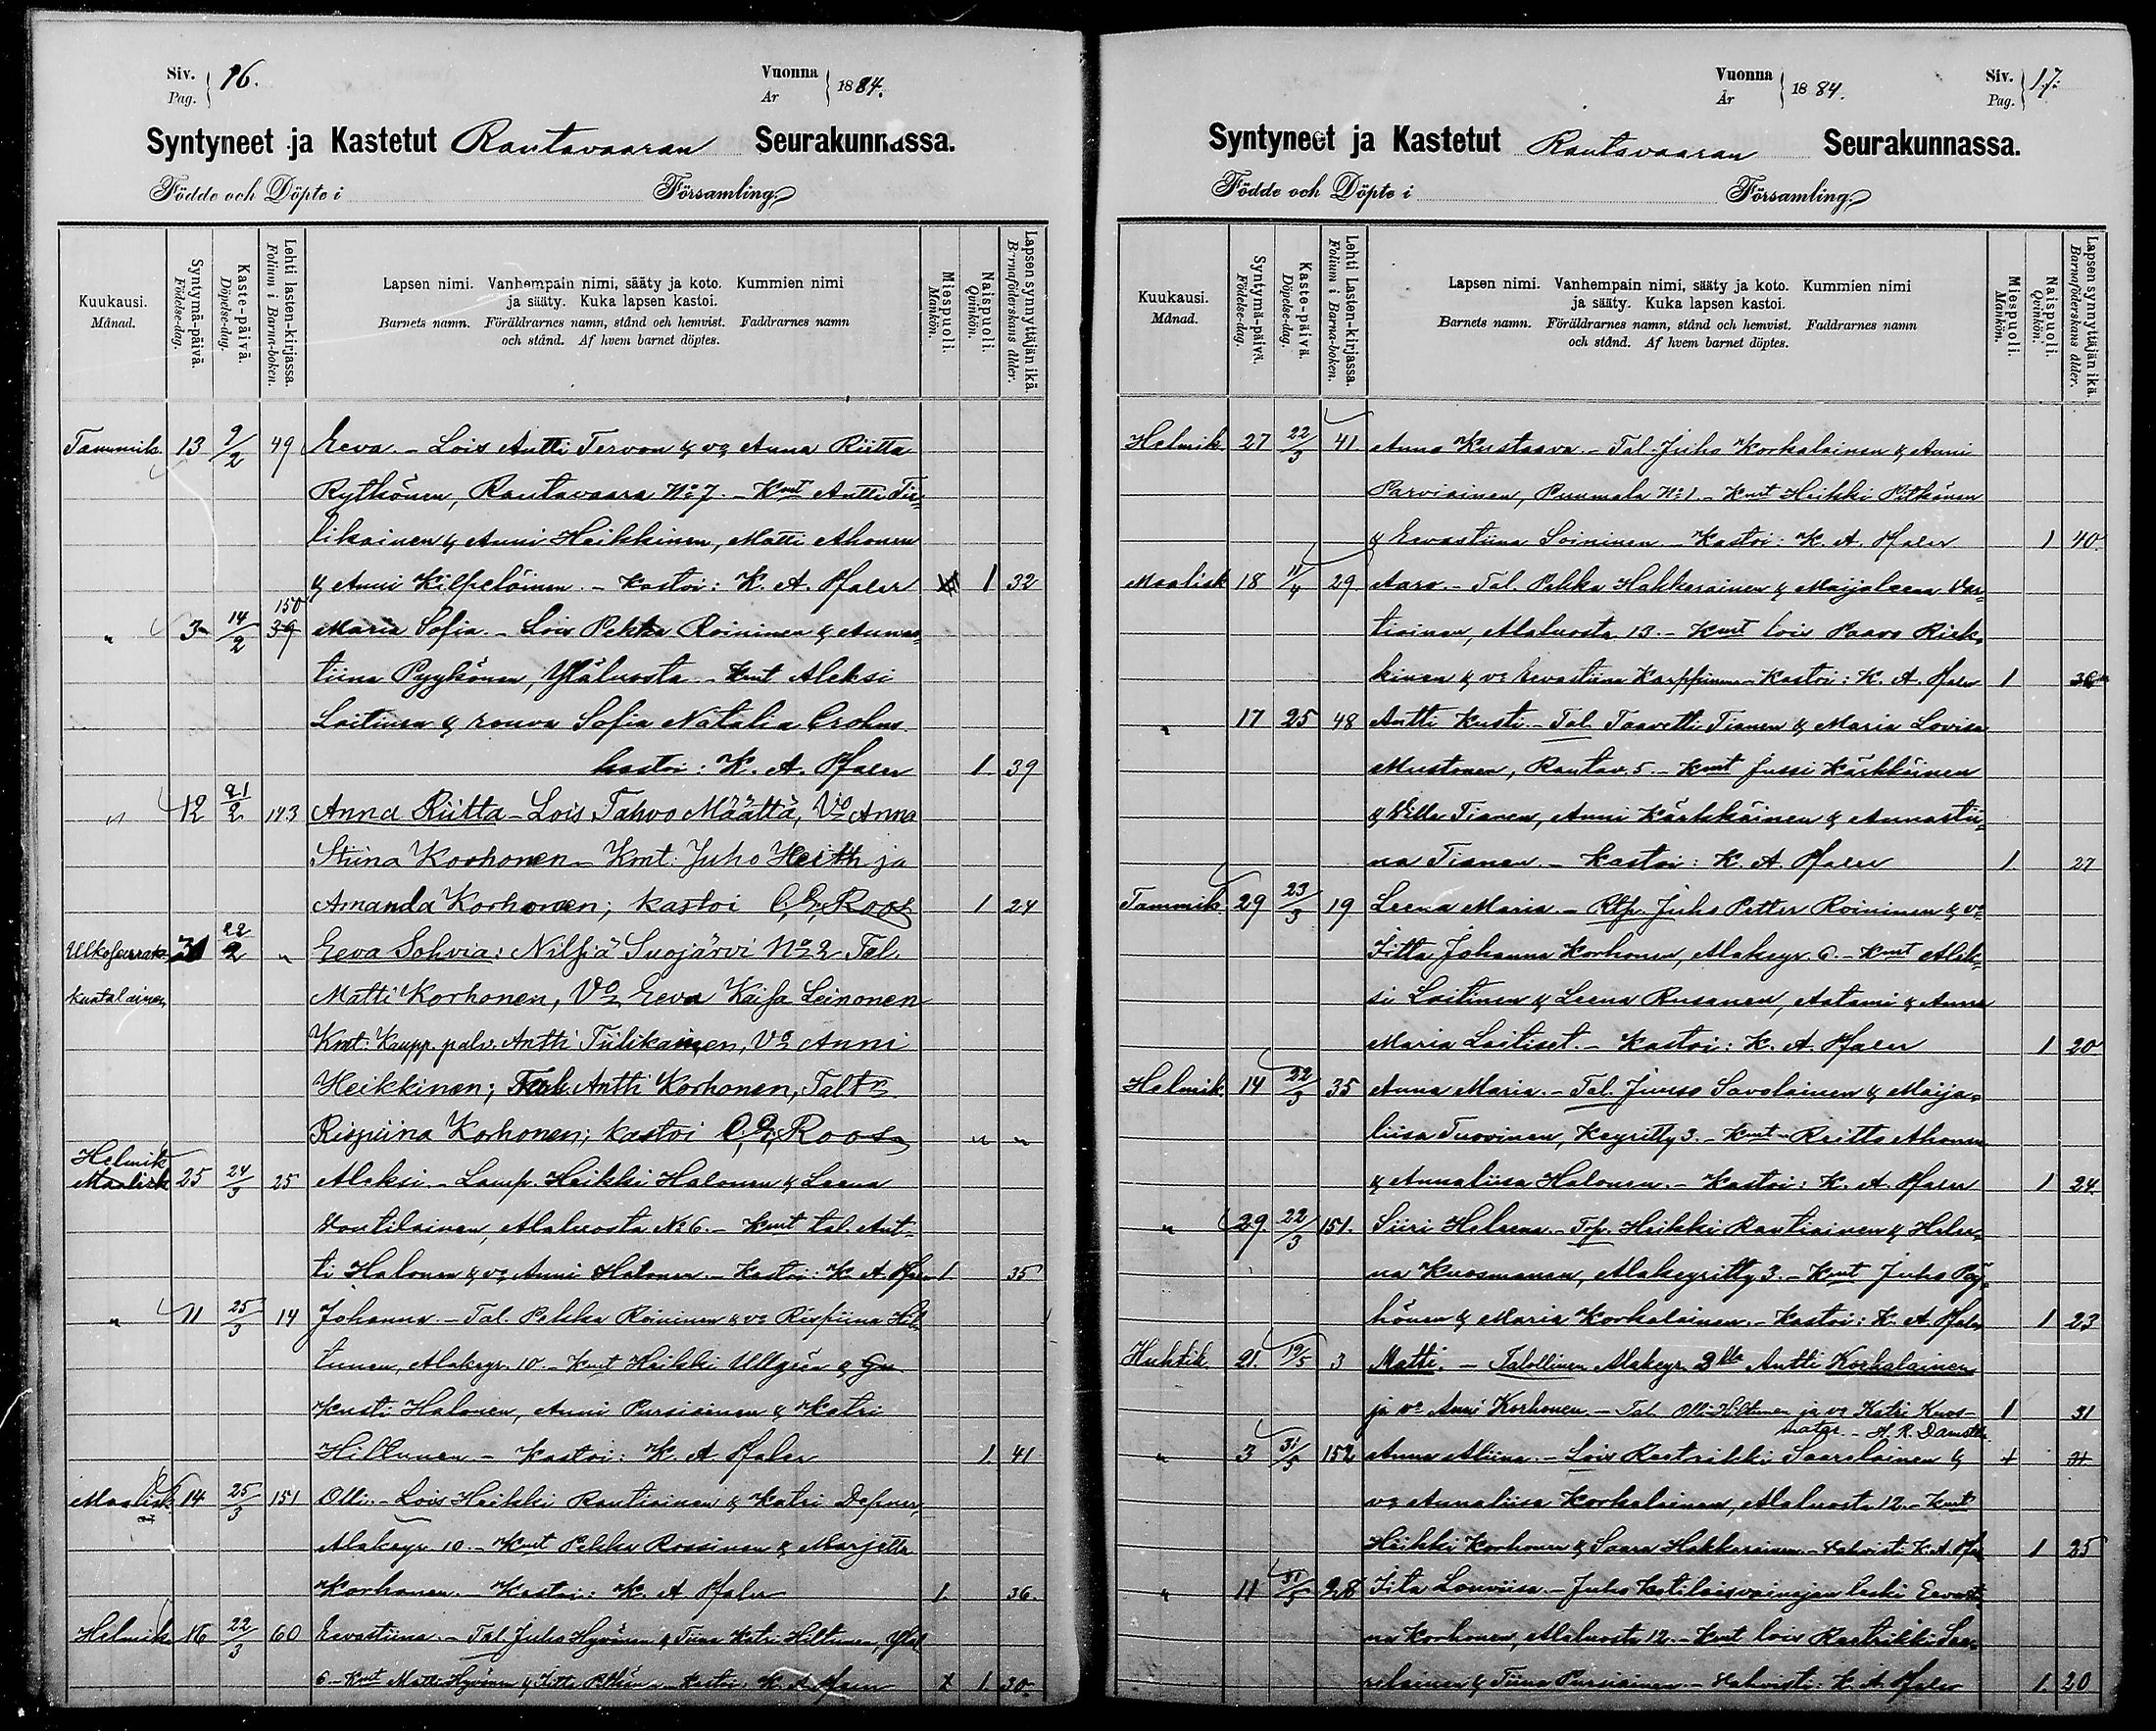 Siv. Pag. 16. Vuonna År 1884.
Syntyneet ja Kastetut Rautavaaran Seurakunnassa.
Födde och Döpte i Församling.
Kuukausi. Månad.
Syntymä-päivä. Födelse-dag.
Kaste-päivä. Döpelse-dag.
Lehti lasten-kirjassa. Folium i Barna-boken.
Lapsen nimi. Vanhempain nimi, sääty ja koto. Kummien nimi
ja sääty. Kuka lapsen kastoi.
Barnets namn. Föräldrarnes namn, stånd och hemvist. Faddrarnes namn
och stånd. Af hvem barnet döptes.
Miespuoli. Mankön.
Naispuoli. Qvinkön.
Lapsen synnyttäjän ikä. Barnaföderskans ålder.
Tammik. 13 9/2 49 Eeva. - Lois Antti Tervon & vo Anna Riitta
Rytkönen, Rautavaara No 7. - Kmt Antti Tii-
likainen & Anni Heikkinen, Matti Ahonen
& Anni Kilpeläinen. - Kastoi: K. A. Pfaler 1 32
" 3 14/2 150 39 Maria Sofia. - Lois Pekka Roininen & Annas-
tiina Pyykönen, Yläluosta - Kmt Aleksi
Laitinen & rouva Sofia Natalia Crohns.
kastoi: K. A. Pfaler 1. 39
" 12 21/2 143 Anna Riitta - Lois Tahvo Määttä, Vo Anna
Stiina Korhonen - Kmt: Juho Heith ja
Amanda Korhonen; kastoi C. G. Roos 1 24
Ulkoseurakuntalainen 31 22/2 " Eeva Sohvia: Nilsiä Suojärvi No 2 Tal.
Matti Korhonen, Vo Eeva Kaisa Leinonen
Kmt: Kaupp. palv. Antti Tiilikainen, Vo Anni
Heikkinen; Tal. Antti Korhonen, Tal. tr
Rispiina Korhonen; kastoi C. G. Roos " "
Helmik Maalisk 25 24/3 25 Aleksi. - Lamp. Heikki Halonen & Leena
Voutilainen, Alaluosta No 6. - Kmt tal. Ant-
ti Halonen & vo Anni Halonen. - Kastoi: K. A. Pfaler 1. 35
" 11 25/3 14 Johanna. - Tal. Pekka Roininen & vo Rispiina Hil-
tunen, Alakeyr. 10. - Kmt Heikki Ullgrén &
Kusti Halonen, Anni Pursiainen & Katri
Hiltunen. - Kastoi: K. A. Pfaler 1. 41
Maalisk. 14 25/3 151 Olli. - Lois Heikki Rautiainen & Katri
Alakeyr 10. - Kmt Pekka Rossinen & Marjetta
Korhonen. - Kastoi: K. A. Pfaler 1. 36.
Helmik 16 22/3 60 Eevastiina. - Tal. Juho Hyvönen & Tiina Katri Hiltunen, Yläl
6 - Kmt Matti Hyvönen & Iitta - Kastoi: K. A. Pfaler 1. 30.
Vuonna År 1884. Siv. Pag. 17.
Syntyneet ja Kastetut Rautavaaran Seurakunnassa.
Födde och Döpte i Församling.
Kuukausi. Månad.
Syntymä-päivä. Födelse-dag.
Kaste-päivä. Döpelse-dag.
Lehti Lasten-kirjassa. Folium i Barna-boken.
Lapsen nimi. Vanhempain nimi, sääty ja koto. Kummien nimi
ja sääty. Kuka lapsen kastoi.
Barnets namn. Föräldrarnes namn, stånd och hemvist. Faddrarnes namn
och stånd. Af hvem barnet döptes.
Miespuoli. Mankön.
Naispuoli. Qvinkön.
Lapsen synnyttäjän ikä. Barnaföderskans ålder.
Helmik. 27 22/3 41. Anna Kustaava. - Tal. Juho Korkalainen & Anni
Parviainen, Puumala No 1. - Kmt Heikki Pitkänen
& Eevastiina Soininen. - Kastoi: K. A. Pfaler 1 40.
Maalisk 18 11/4 29 Aaro. - Tal. Pekka Hakkarainen & Maijaleena Var-
tiainen, Alaluosta 13. - Kmt lois Paavo Riek-
kinen & vo Eevastiina Karppinen - Kastoi: K. A. Pfaler 1
" 17 25 48 Antti Kusti. - Tal. Taavetti Tianen & Maria Lovisa
Mustonen, Rautav. 5. - Kmt Jussi Kärkkäinen
& Ville Tianen, Anni Kärkkäinen & Annastii-
na Tianen. - Kastoi: K. A. Pfaler 1. 27
Tammik. 29 23/3 19 Leena Maria. - Rtp. Juho Petter Roininen & vo
Iitta Johanna Korhonen, Alakeyr. 6. - Kmt Alek-
si Laitinen & Leena Rusanen, Aatami & Anna
Maria Laitiset. - Kastoi: K. A. Pfaler 1 20
Helmik. 14 22/3 35 Anna Maria. - Tal. Juuso Savolainen & Maija-
liisa Tuovinen, Keyritty 3. - Kmt Reitto Ahonen
& Annaliisa Halonen. - Kastoi: K. A. Pfaler 1 24.
" 29. 22/3 151. Siiri Heleena. - Tp. Heikki Rautiainen & Helee-
na Kuosmanen, Alakeyritty 3. - Kmt Juho Pöy-
hönen & Maria Korkalainen. - Kastoi: K. A. Pfaler 1 23
Huhtik. 21. 19/5 3 Matti. - Talollinen Alakeyr. 3lla Antti Korkalainen
ja vo Anni Korhonen. - Tal. Olli Hiltunen ja vo Katri Kuos- 1 31
matar. - A. R. Damstén.
" 3 31/5 152 Anna Aliina. - Lois Raetrikki Saarelainen &
vo Annaliisa Korkalainen, Alaluosta 12. - Kmt
Heikki Korhonen & Saara Hakkarainen. - Vahvisti K. A. Pfa 1 25
" 11 31/5 28 Iita Loviisa. - Juho leski Eevasti-
na Korhonen, Alaluosta 12. - Kmt lois Raetrikki Saa-
relainen & Tiina Pursiainen. - Vahvisti: K. A. Pfaler 1. 20